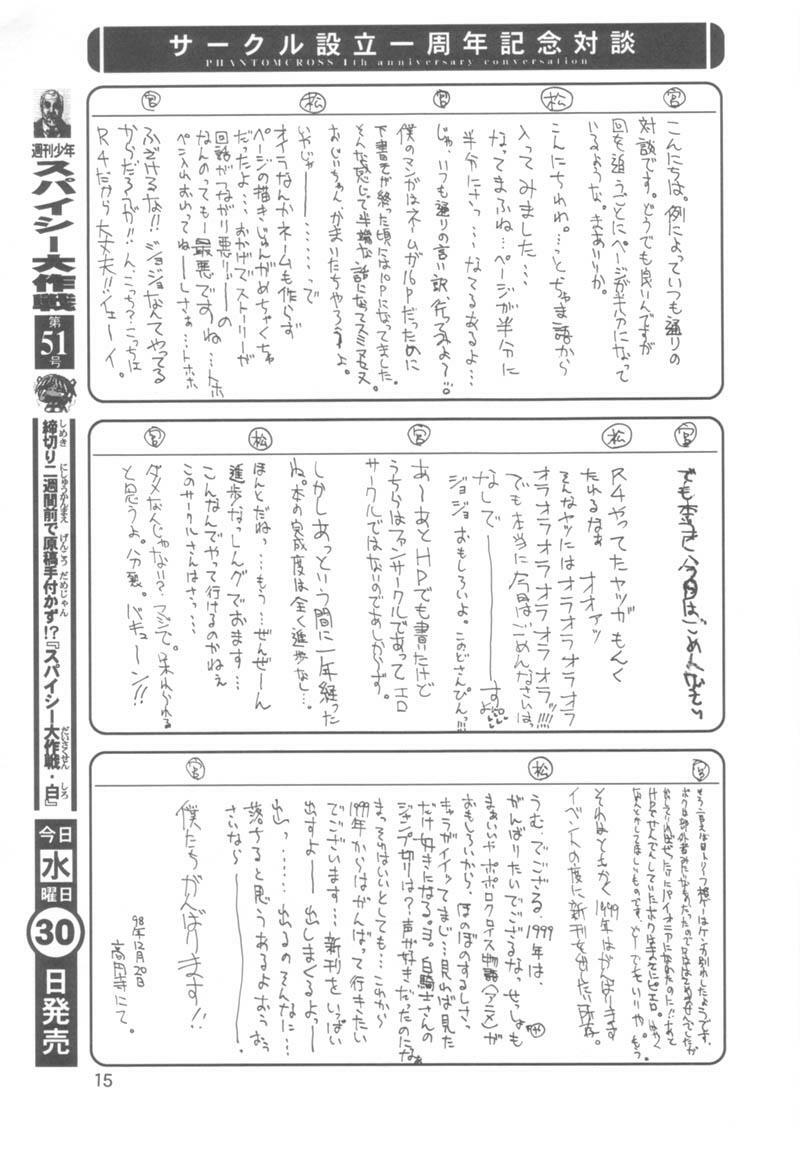 サークル設立一周年記念対談
PHANTOMCROSS 1th anniversary conversation
宮
こんにちは。例によっていつも通りの
対談です。どうでも良いんですが
回を追うごとにページが半分になって
いるような。気ありりか。
松
こんにちわわ。…とちゃま語から
入ってみました…
なってまふね…ページが半分に
半分にさっ…なてるあるよ…
宮
じゃ、いつも通りの言い訳、行ってみよ～!。
僕のマンガはネームが16Pだったために
下書きが終った頃には10Pになってました。
そんな感じで半端な話になってスミマセヌ
おじいちゃん、かまいたちやろうよ。
松
いやじゃー………で
オイラなんかネームも作らず
ページの描きじゅんがめちゃくちゃ
だったよ…おかげでストーリーが
回話がつながり悪りぃーの
なんのっても…最悪ですね…トホ
ペン入れおわってねーしさぁ…トホホ
宮
ふざけるな!!ジョジョなんてやってる
からだろが!!んこっち?こっちは
R4だから大丈夫!!イェーイ。
宮
でも本当に今回はごめんなさい
松
R4やってたヤツがもんく
たれるなぁ
オオァッ
そんなヤツにはオラオラオラオラ
オラオラオラオラオラオラッ!!!!
でも本当に今回はごめんなさいはっ
なしで―――すよ
ジョジョおもしろいよ。このどさんぴんっ!!!
宮
あ～あとHPでも書いたけど
うちらはファンサークルであってエロ
サークルではないのであしからず。
しかしあっという間に一年経った
ね。本の完成度は全く進歩なし…。
松
ほんとだねっ…もう…ぜんぜーん
進歩なっしんグでおます…
こんなんでやって行けるのかねぇ
このサークルさんはさっ…
宮
ダメなんじゃない?マジで。呆れられる
と思うよ。分裂。バキューン!!
宮
それはともかく1999年はがんばります
イベントの度に新刊を出したい所存。
松
うむ、でござる。1999年は、
がんばりたいでござるなっ。せっしゃも
まぁいいやポポロクロイス物語(アニメ)が
おもしろいから、ほのぼのするしさっ
キャラがイイッてまじ…見れば見た
だけ好きになる。ヨ。白騎士さんの
ジャンプ切りは?声が好きだったのになぁ
まっそれはいいとしても…これから
1999年からはがんばって行きたい
でございます…新刊をいっぱい
出すよ――出しまくるよっ――
出っ……出るのそんなに…
落ちると思うあるよおうおぅ
さいなら―――。
宮
僕たちがんばります!!
98年12月20日
高円寺にて。
週刊少年
スパイシー大作戦
第51号
締切り二週間前で原稿手付かず!?『スパイシー大作戦・白』
しめき にしゅうかんまえ げんこう だめじゃん だいさくせん しろ
今日水曜日30日発売
15